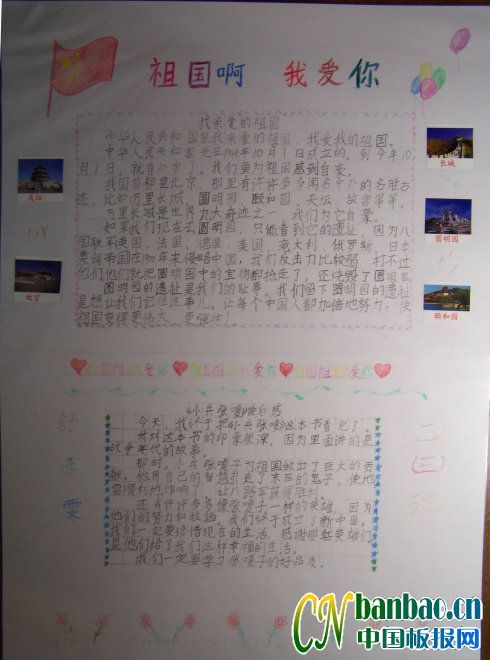 祖国啊 我爱你
我亲爱的祖国
中华人民共和国是我亲爱的祖国,我爱我的祖国。
中华人民共和国是在1949年10月1日成立的,到今年10
月1日,就有 岁了。我们要为祖国感到自豪。
我国首都是北京,那里有许许多多闻名中外的名胜古
迹,比如万里长城,圆明园,颐和园,天坛,故宫等等。
万里长城是世界九大奇迹之一,我们为它自豪。
如果我们现在去圆明园,只能看到它的遗址,因为八
国联军英国,法国,德国,美国,意大利,俄罗斯,日本
奥匈帝国在190 年来侵略中国,我们反击力比较弱,打不过
他们,他们就把圆明园中的宝物都抢走了,还烧毁了圆明园。
圆明园的遗址是我们的耻辱。我们留下圆明园的遗址
是想让我们记住这事儿。让每个中国人都加倍地努力,使
祖国变得更伟大、更强壮!
天坛
故宫
长城
圆明园
颐和园
祖国祖国我爱你 祖国祖国我爱你 祖国祖国我爱你
小兵张嘎读后感
今天,我终于把小兵张嘎这本书看完了。
我对这本书的印象很深,因为里面讲的是
战争年代的故事。
那时,小兵张嘎子为祖国做出了巨大的贡
献。他用自己的智慧引走了东巨的鬼子,使地
雷顺利地炸响了,让八路军获得胜利。
还有许许多多像张嘎子一样的英雄,因为
他们的努力和 ,我们终于成立了新中国,
我们一定要珍惜现在的生活。感谢那些英雄们
是他们给了我们这样幸福的生活。
我们一定要学习张嘎子的好品质。
舒 雯
二(三)班
CNbanbao.cn
中国板报网